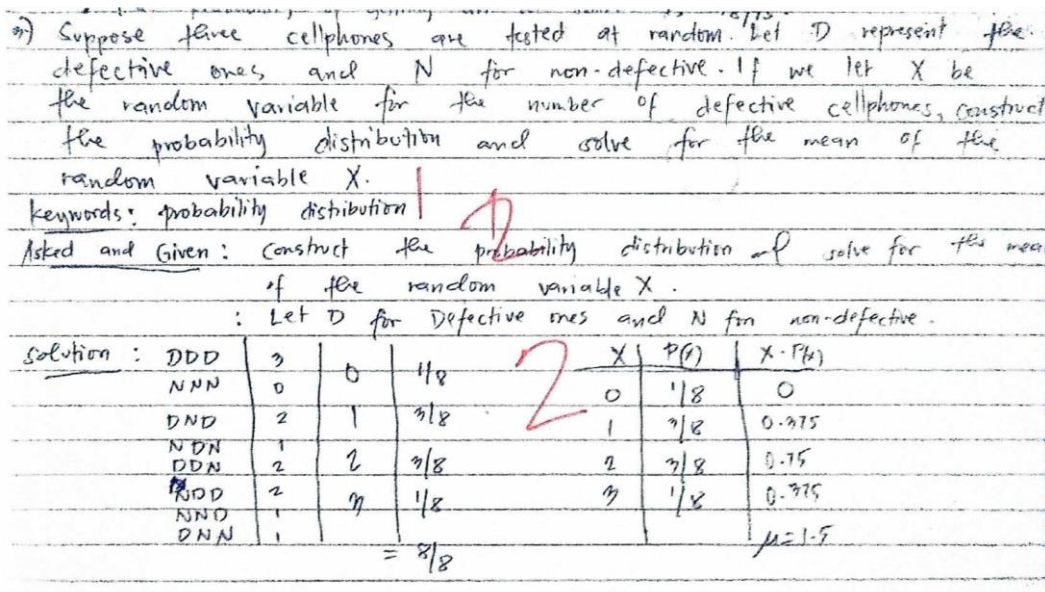 3) Suppose three cellphones are tested at random. Let D represent the
defective ones and N for non-defective. If we let X be
the random variable for the number of defective cellphones, construct
the probability distribution and solve for the mean of the
random variable X.
Keywords: probability distribution 1
Asked and Given: Construct the probability distribution & solve for the mea
of the random variable X. 2
: Let D for Defective ones and N for non-defective.
Solution: DDD 3 0 1/8 2 X P(x) X·P(x)
NNN 0 0 1/8 0
DND 2 1 3/8 1 3/8 0.375
NDN 1
DDN 2 2 3/8 2 3/8 0.75
NDD 2 3 1/8 3 1/8 0.375
NND 1
DNN 1 μ=1.5
= 8/8